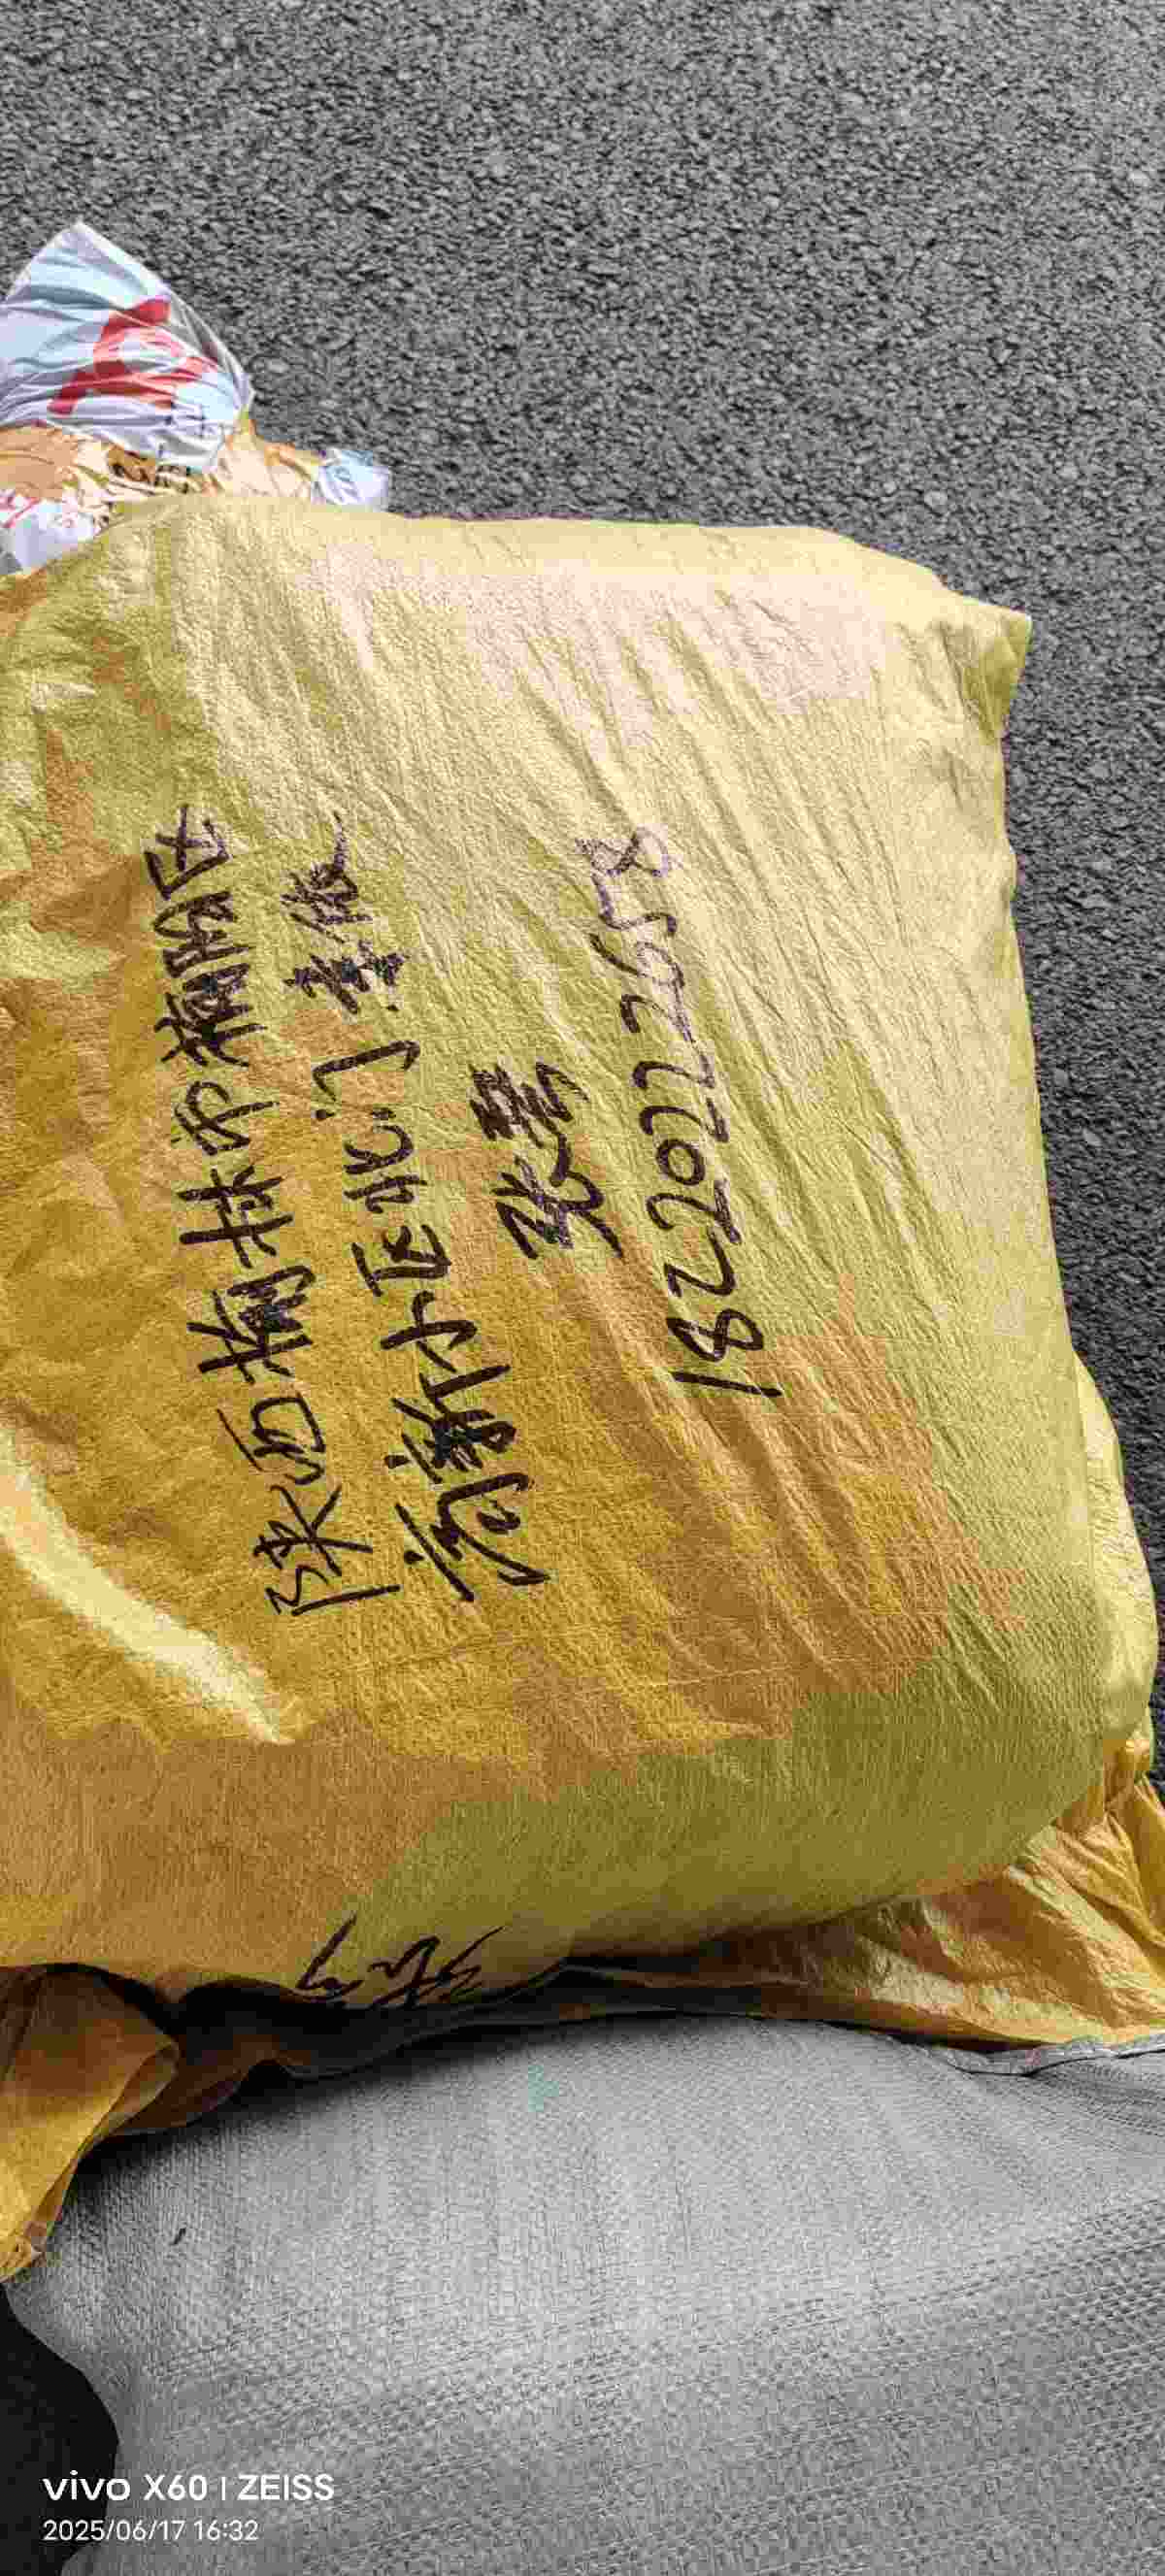 陕西榆林市榆阳区
高新小区北门童做
张
18220222658
vivo X60 | ZEISS
2025/06/17 16:32